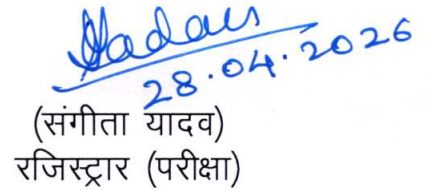 Yadav
28.04.2026
(संगीता यादव)
रजिस्ट्रार (परीक्षा)